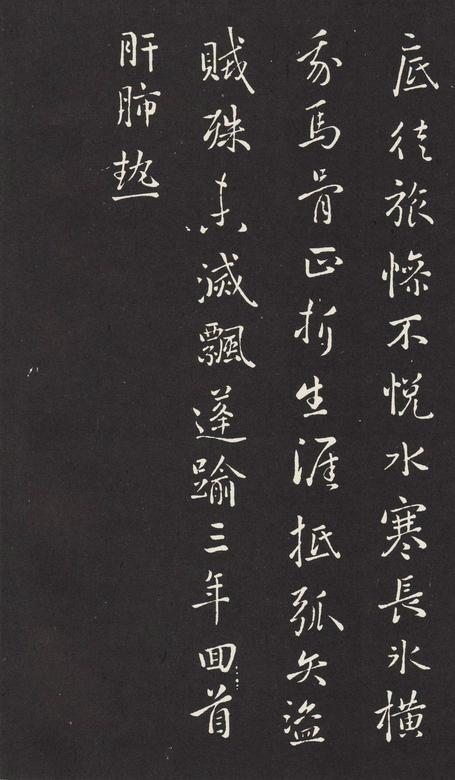 底徒旅慘不悅水寒長冰橫
我馬骨正折生涯抵弧矢盜
賊殊未滅飄蓬踰三年回首
肝肺熱